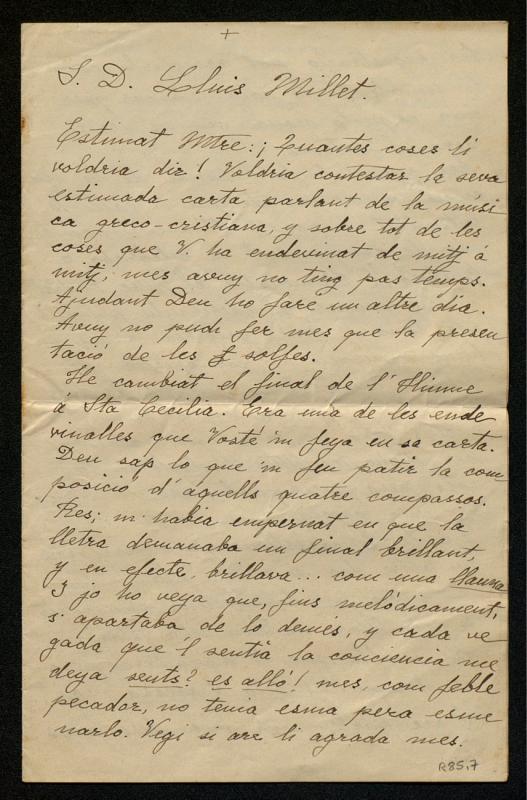 +
S. D. Lluis Millet.
Estimat Mtre: ¡ Quantes coses li
voldria dir! Voldria contestar la seva
estimada carta parlant de la músi
ca greco-cristiana, y sobre tot de les
coses que V. ha endevinat de mitj á
mitj; mes avuy no tinq pas temps.
Ajudant Deu ho faré un altre dia.
Avuy no puch fer mes que la presen
tació de les solfes.
He cambiat el final de l' Himne
á Sta Cecilia. Era una de les ende
vinalles que Vosté 'm feya en sa carta.
Deu sap lo que 'm feu patir la com-
posició d' aquells quatre compassos.
Res; m' habia empernat en que la
lletra demanaba un final brillant,
y en efecte, brillava... com una llauna
Y jo ho veya que, fins melódicament,
s' apartaba de lo demés, y cada ve
gada que 'l sentia la conciencia me
deya sents? es alló! mes, com feble
pecador, no tenia esma pera esme
narlo. Vegi si are li agrada mes.
R85,7